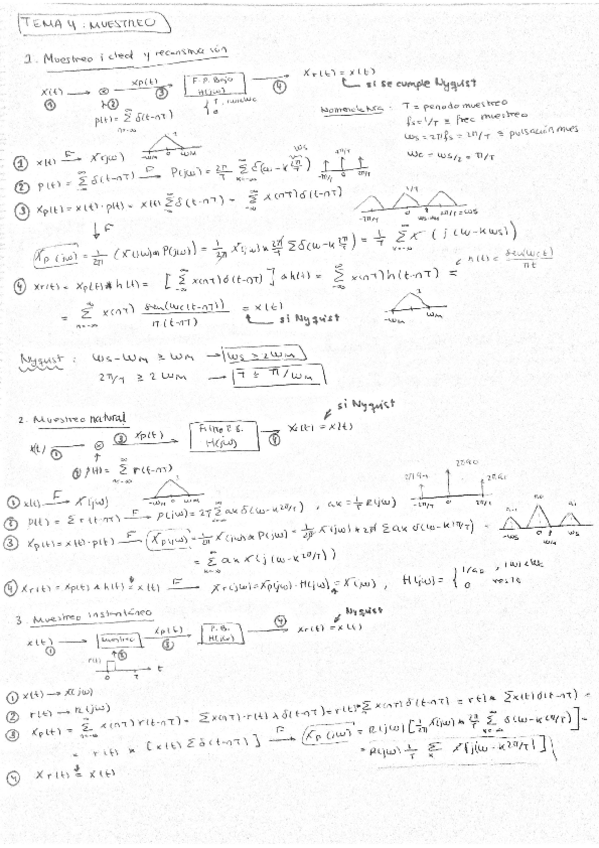 TEMA 4: MUESTREO
1. Muestreo ideal y reconstrucción
x(t) → ⊗ xp(t) → F.P. Bajo H(jω) → xr(t) = x(t)
① ② ③ ④ si se cumple Nyquist
p(t) = Σ δ(t-nT)
Nomenclatura: T = periodo muestreo
fs = 1/T ≡ frec muestreo
ωs = 2πfs = 2π/T ≡ pulsación mues
ωc = ωs/2 = π/T
① x(t) F→ X(jω)
-ωM 0 ωM
② p(t) = Σ δ(t-nT) F→ P(jω) = 2π/T Σ δ(ω-k 2π/T)
③ xp(t) = x(t)·p(t) = x(t) Σ δ(t-nT) = Σ x(nT) δ(t-nT)
↓ F
Xp(jω) = 1/2π (X(jω) * P(jω)) = 1/2π X(jω) * 2π/T Σ δ(ω-k 2π/T) = 1/T Σ X (j(ω-kωs))
④ xr(t) = xp(t) * h(t) = [Σ x(nT) δ(t-nT)] * h(t) = Σ x(nT) h(t-nT) =
h(t) = sen(ωc t)/πt
= Σ x(nT) sen(ωc(t-nT))/π(t-nT) = x(t)
si Nyquist
-ωM 0 ωM
Nyquist: ωs-ωM ≥ ωM → ωs ≥ 2ωM
2π/T ≥ 2ωM → T ≤ π/ωM
2. Muestreo natural
si Nyquist
x(t) ① → ⊗ ③ xp(t) → H(jω) → ④ xr(t) = x(t)
② p(t) = Σ r(t-nT)
① x(t) F→ X(jω)
-ωM 0 ωM
② p(t) = Σ r(t-nT) F→ P(jω) = 2π Σ ak δ(ω-k 2π/T), ak = 1/T R(jω)
③ xp(t) = x(t)·p(t) F→ Xp(jω) = 1/2π X(jω) * P(jω) = 1/2π X(jω) * 2π Σ ak δ(ω-k 2π/T) =
= Σ ak X(j(ω-k 2π/T))
④ xr(t) = xp(t) * h(t) = x(t) → Xr(jω) = Xp(jω)·H(jω) = X(jω), H(jω) = { 1/a0, |ω| < ωc
0 resto
3. Muestreo instantáneo
Nyquist
x(t) ① → Muestreo xp(t) ③ → P.B. H(jω) → ④ xr(t) = x(t)
r(t) ②
T t
① x(t) → X(jω)
② r(t) → R(jω)
③ xp(t) = Σ x(nT) r(t-nT) = Σ x(nT)·r(t) * δ(t-nT) = r(t) * Σ x(nT) δ(t-nT) = r(t) * Σ x(t) δ(t-nT) =
= r(t) * [x(t) Σ δ(t-nT)] F→ Xp(jω) = R(jω) [1/2π X(jω) * 2π/T Σ δ(ω-k 2π/T)] =
= R(jω) 1/T Σ X[j(ω-k 2π/T)]
④ xr(t) = x(t)